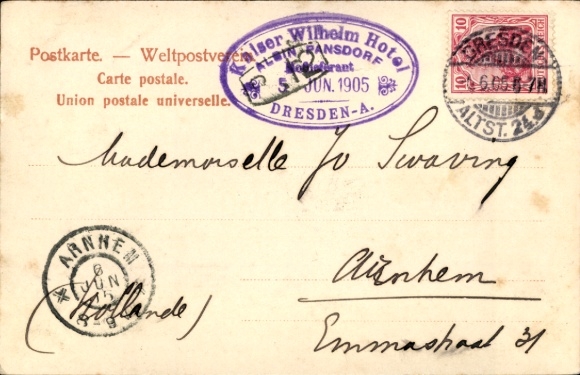 Postkarte. — Weltpostverein
Carte postale.
Union postale universelle.
Kaiser Wilhelm Hotel
ALBIN RANSDORF
Hoflieferant
5 JUN. 1905
DRESDEN-A.
10 10
DRESDEN
ALTST. 24
Mademoiselle Jo Swaving
Arnhem
(Hollande)
Emmastraat 31
ARNHEM
6
JUN